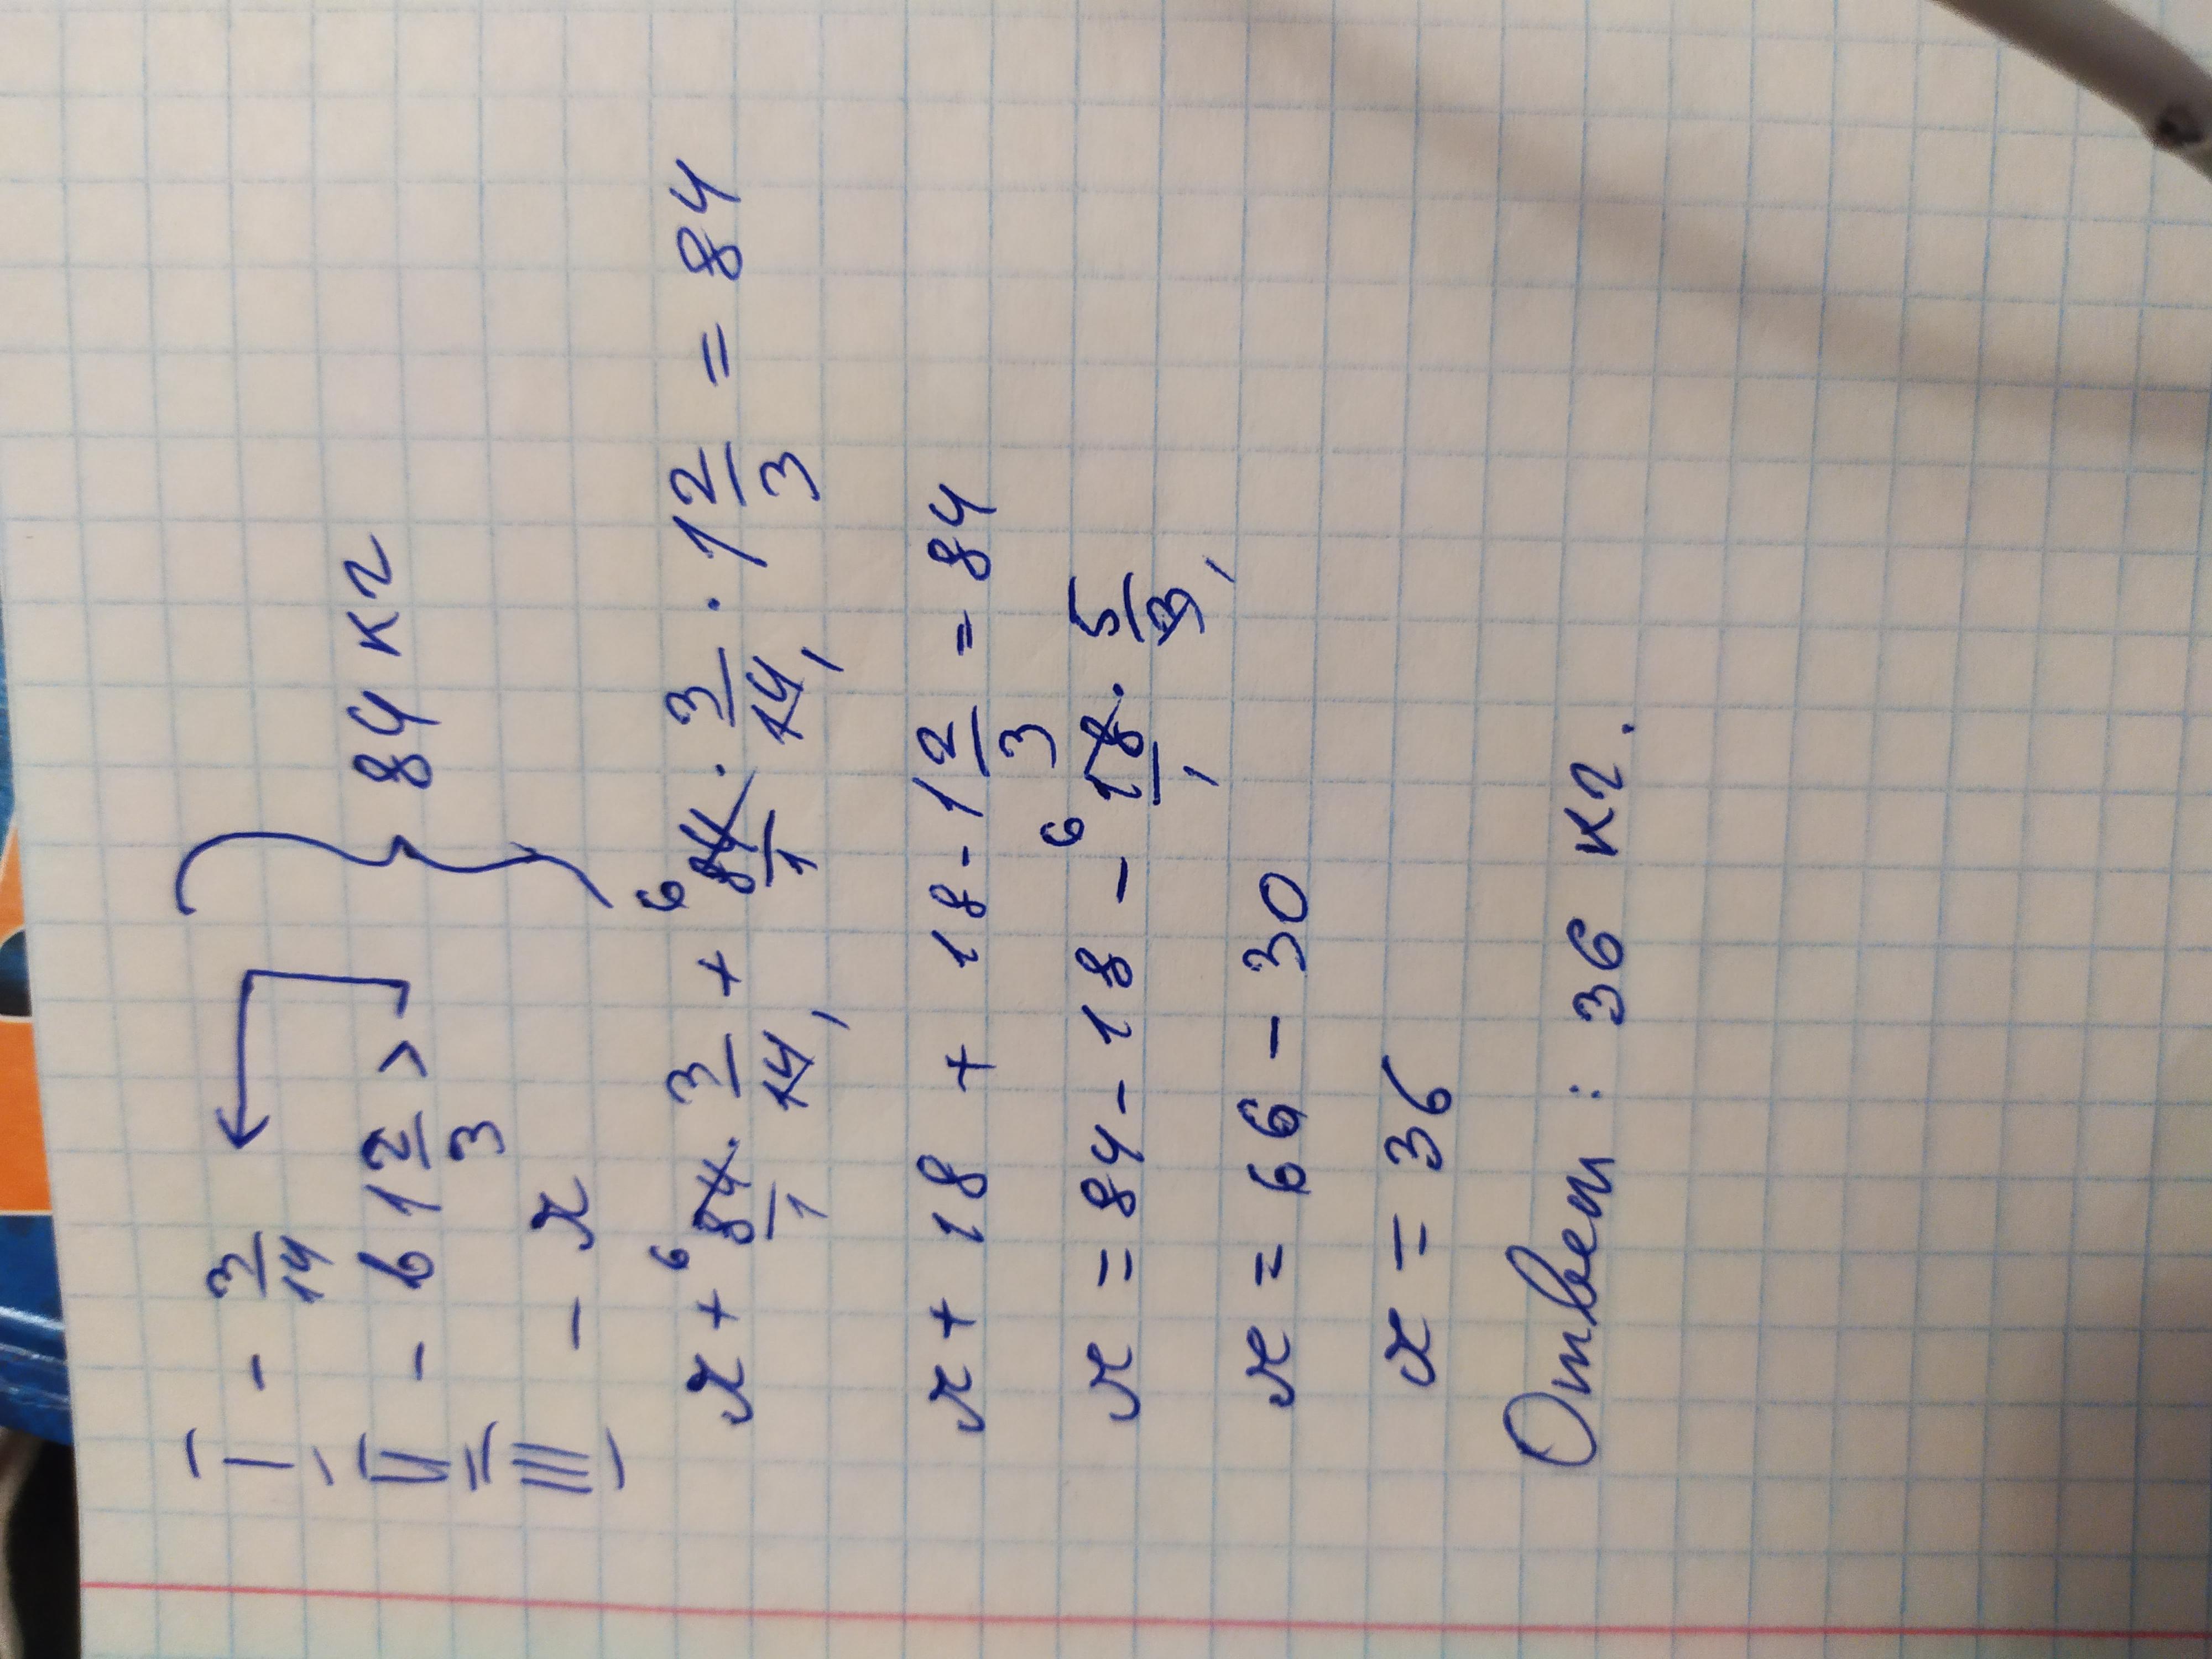 I - 3/14
II - в 1 2/3 >
III - x
84 кг
x + 84/1 · 3/14 + 84/1 · 3/14 · 1 2/3 = 84
x + 18 + 18 · 1 2/3 = 84
x = 84 - 18 - 18/1 · 5/3
x = 66 - 30
x = 36
Ответ: 36 кг.